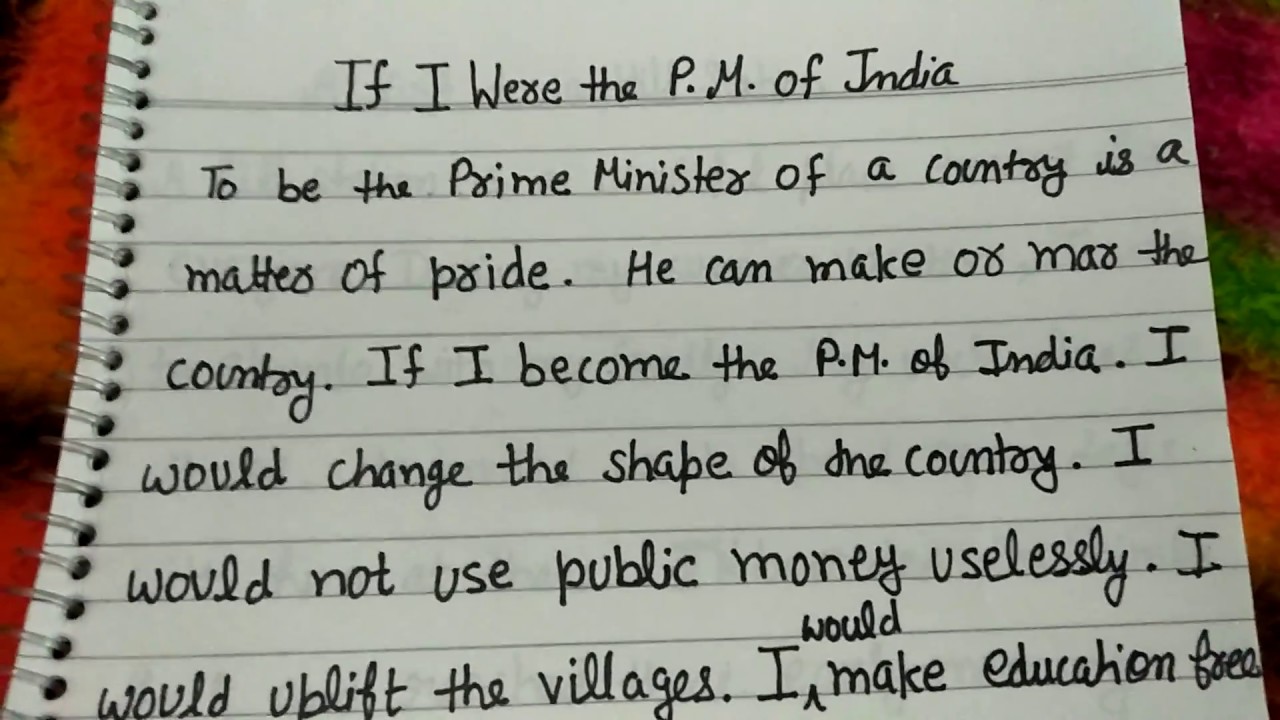 If I Were the P.M. of India
To be the Prime Minister of a country is a
matter of pride. He can make or mar the
country. If I become the P.M. of India. I
would change the shape of the country. I
would not use public money uselessly. I
would
would uplift the villages. I ^ make education free